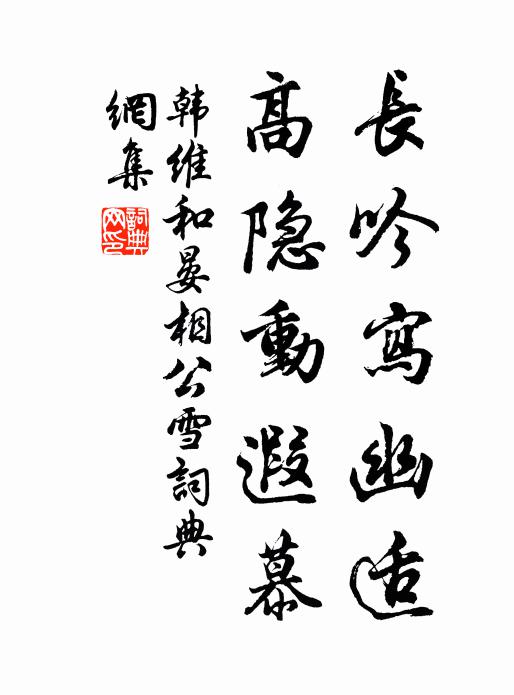 長吟寫幽适
高隐動遐慕
韩維和晏相公雪詞典
網集
詞典
网印